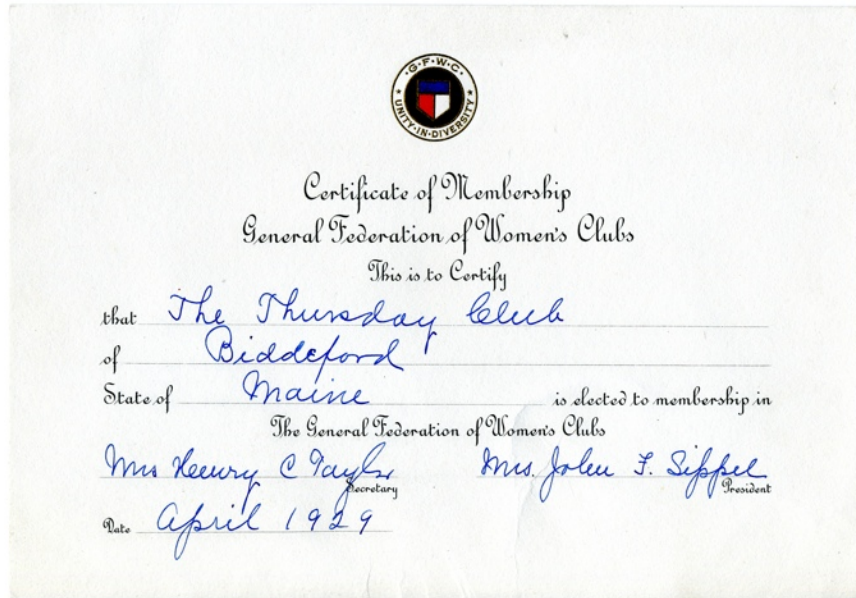 G·F·W·C·
UNITY·IN·DIVERSITY
Certificate of Membership
General Federation of Women's Clubs
This is to Certify
that The Thursday Club
of Biddeford
State of Maine is elected to membership in
The General Federation of Women's Clubs
Mrs Henry C Taylor Mrs. John F. Sippel
Secretary President
Date April 1929